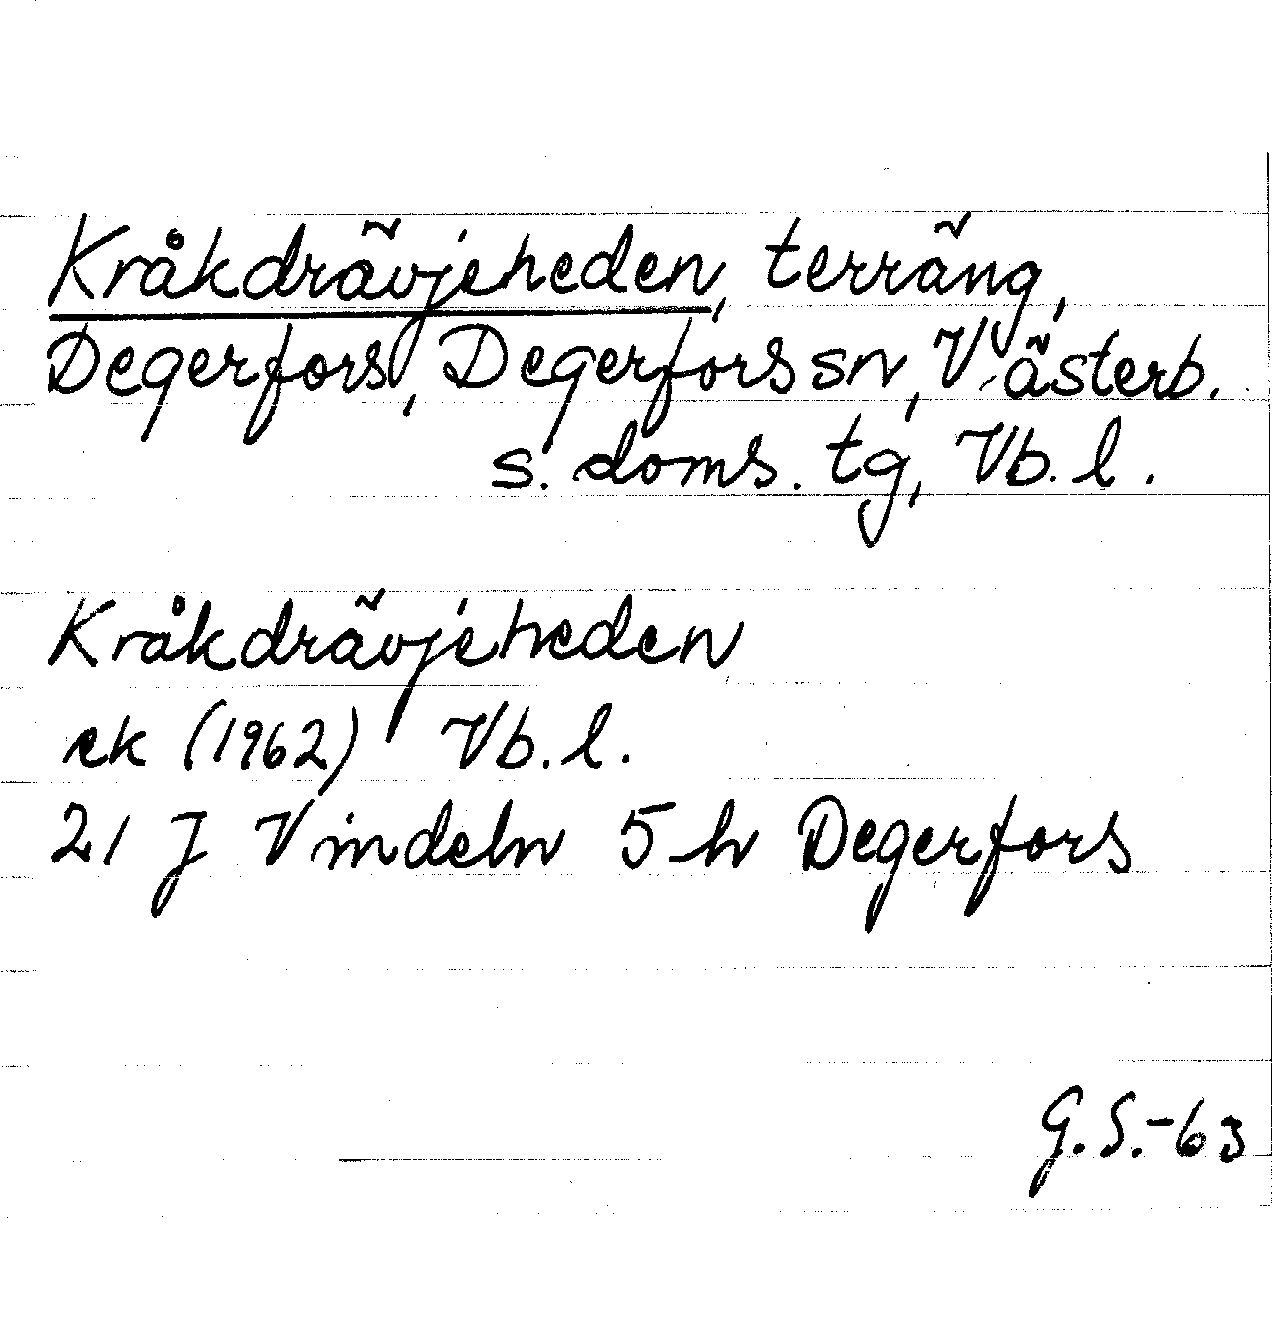 Kråkdrävjeheden, terräng,
Degerfors, Degerfors sn, Västerb.
s. doms. tg, Vb. l.
Kråkdrävjeheden
ek (1962) Vb. l.
21 J Vindeln 5 h Degerfors
G. S. -63